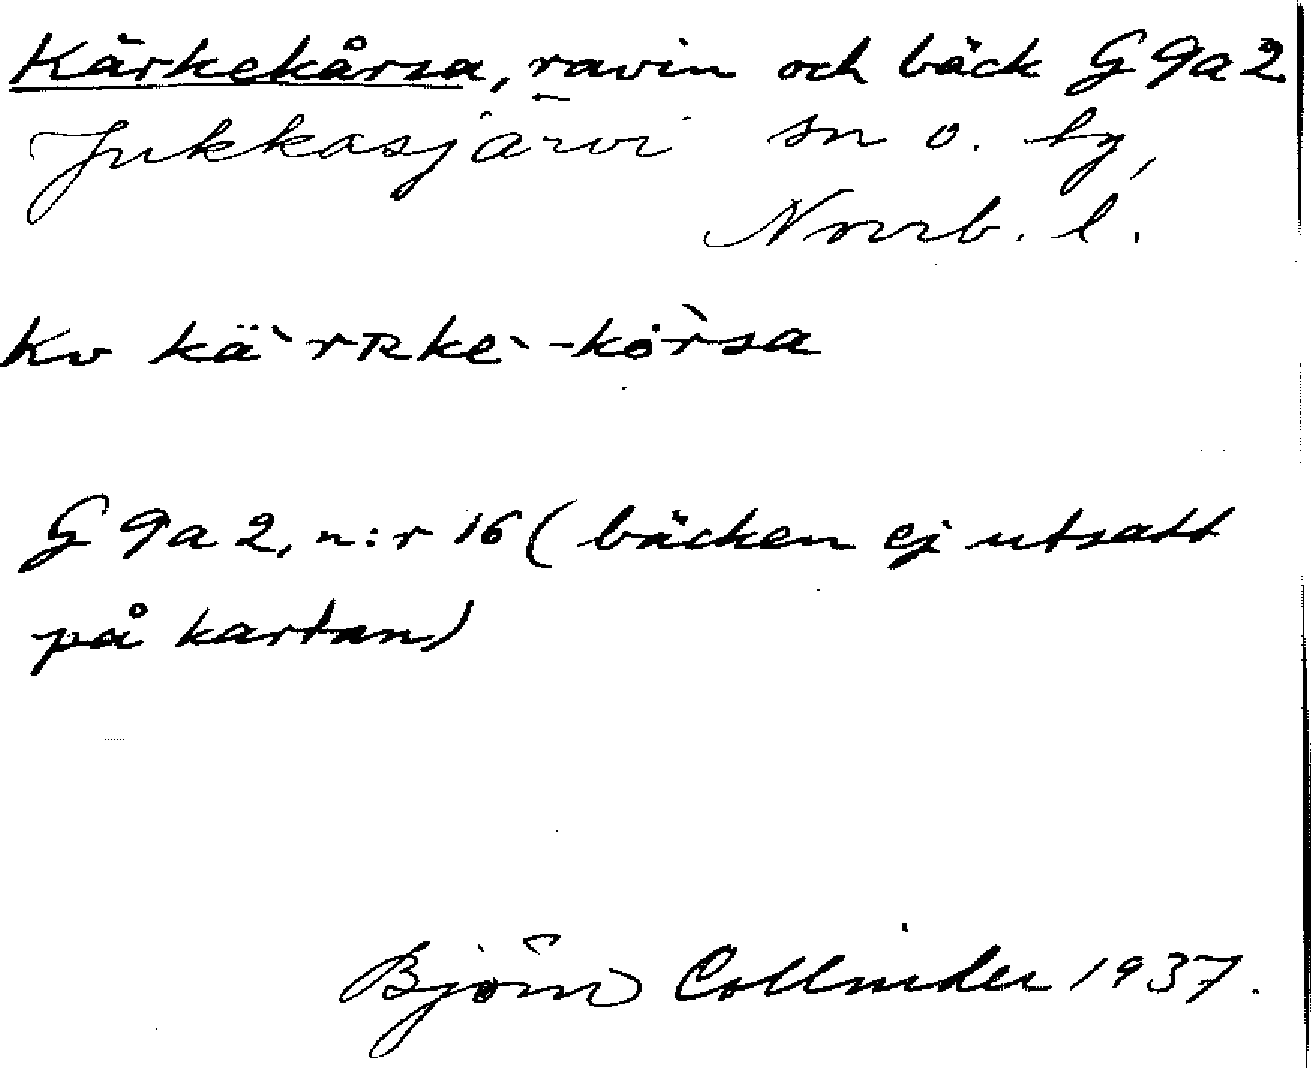 Kärkekårsa, ravin och bäck G 9a2
Jukkasjärvi sn o. by,
Norrb. l.
Kv kä`rRke`-kȯ̀rsa
G 9a2, n:r 16 (bäcken ej utsatt
på kartan)
Björn Collinder 1937.